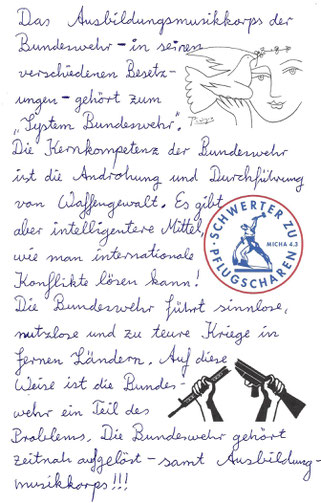 Das Ausbildungsmusikkorps der
Bundeswehr – in seinen
verschiedenen Besetz-
ungen – gehört zum
„System Bundeswehr".
Die Kernkompetenz der Bundeswehr
ist die Androhung und Durchführung
von Waffengewalt. Es gibt
aber intelligentere Mittel,
wie man internationale
Konflikte lösen kann!
SCHWERTER ZU
PFLUGSCHAREN
MICHA 4.3
Die Bundeswehr führt sinnlose,
nutzlose und zu teure Kriege in
fernen Ländern. Auf diese
Weise ist die Bundes-
wehr ein Teil des
Problems. Die Bundeswehr gehört
zeitnah aufgelöst – samt Ausbildung-
musikkorps!!!